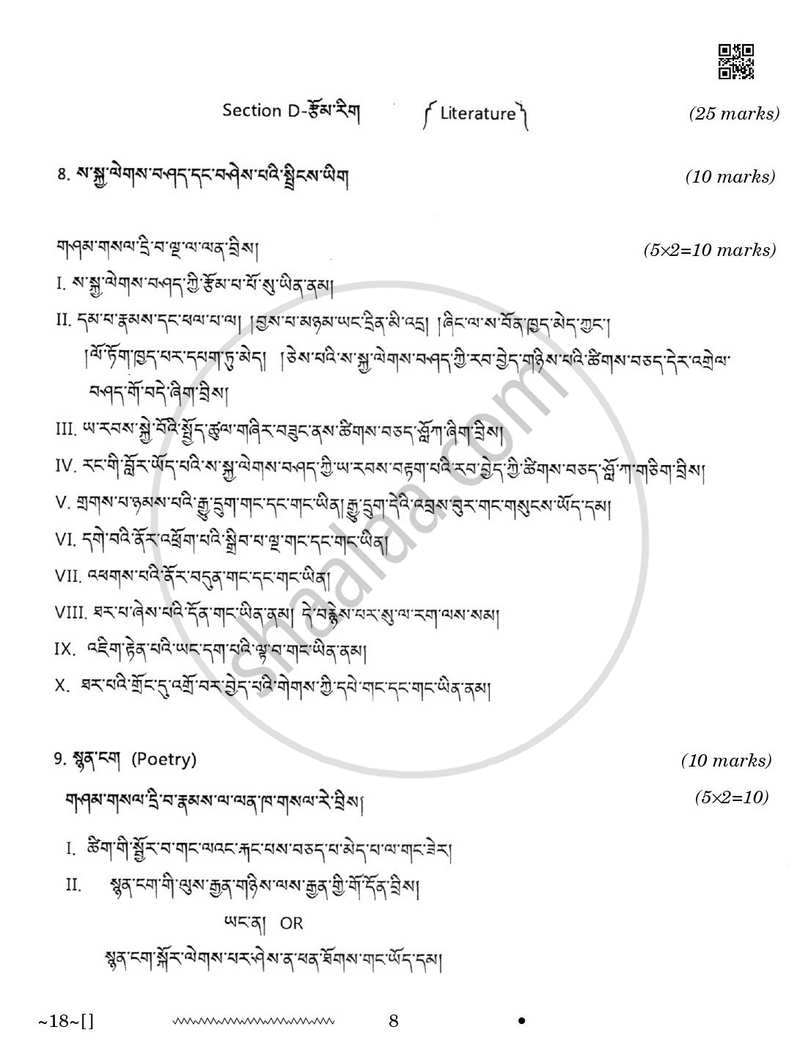 Section D-རྩོམ་རིག ༼ Literature ༽ (25 marks)
8. ས་སྐྱ་ལེགས་བཤད་དང་བཤེས་པའི་སྤྲིངས་ཡིག (10 marks)
གཤམ་གསལ་དྲི་བ་ལྔ་ལ་ལན་བྲིས། (5×2=10 marks)
I. ས་སྐྱ་ལེགས་བཤད་ཀྱི་རྩོམ་པ་པོ་སུ་ཡིན་ནམ།
II. དམ་པ་རྣམས་དང་ཕལ་པ་ལ། །བྱས་པ་མཉམ་ཡང་དྲིན་མི་འདྲ། །ཞིང་ལ་ས་བོན་ཁྱད་མེད་ཀྱང་།
།ལོ་ཏོག་ཁྱད་པར་དཔག་ཏུ་མེད། །ཅེས་པའི་ས་སྐྱ་ལེགས་བཤད་ཀྱི་རབ་བྱེད་གཉིས་པའི་ཚིགས་བཅད་དེར་འགྲེལ་
བཤད་གོ་བདེ་ཞིག་བྲིས།
III. ཡ་རབས་སྐྱེ་བོའི་སྤྱོད་ཚུལ་གཞིར་བཟུང་ནས་ཚིགས་བཅད་ཤློཀ་ཞིག་བྲིས།
IV. རང་གི་བློར་ཡོད་པའི་ས་སྐྱ་ལེགས་བཤད་ཀྱི་ཡ་རབས་བརྟག་པའི་རབ་བྱེད་ཀྱི་ཚིགས་བཅད་ཤློ་ཀ་གཅིག་བྲིས།
V. གྲགས་པ་ཉམས་པའི་རྒྱུ་དྲུག་གང་དང་གང་ཡིན། རྒྱུ་དྲུག་དེའི་འབྲས་བུར་གང་གསུངས་ཡོད་དམ།
VI. དགེ་བའི་ནོར་འཕྲོག་པའི་སྒྲིབ་པ་ལྔ་གང་དང་གང་ཡིན།
VII. འཕགས་པའི་ནོར་བདུན་གང་དང་གང་ཡིན།
VIII. ཐར་པ་ཞེས་པའི་དོན་གང་ཡིན་ནམ། དེ་བརྙེས་པར་སུ་ལ་རག་ལས་སམ།
IX. འཇིག་རྟེན་པའི་ཡང་དག་པའི་ལྟ་བ་གང་ཡིན་ནམ།
X. ཐར་པའི་གྲོང་དུ་འགྲོ་བར་བྱེད་པའི་གེགས་ཀྱི་དཔེ་གང་དང་གང་ཡིན་ནམ།
9. སྙན་ངག (Poetry) (10 marks)
གཤམ་གསལ་དྲི་བ་རྣམས་ལ་ལན་ཁ་གསལ་རེ་བྲིས། (5×2=10)
I. ཚིག་གི་སྦྱོར་བ་གང་ལའང་རྐང་པས་བཅད་པ་མེད་པ་ལ་གང་ཟེར།
II. སྙན་ངག་གི་ལུས་རྒྱན་གཉིས་ལས་རྒྱན་གྱི་གོ་དོན་བྲིས།
ཡང་ན། OR
སྙན་ངག་སྐོར་ལེགས་པར་ཤེས་ན་ཕན་ཐོགས་གང་ཡོད་དམ།
~18~[] 8
shaalaa.com